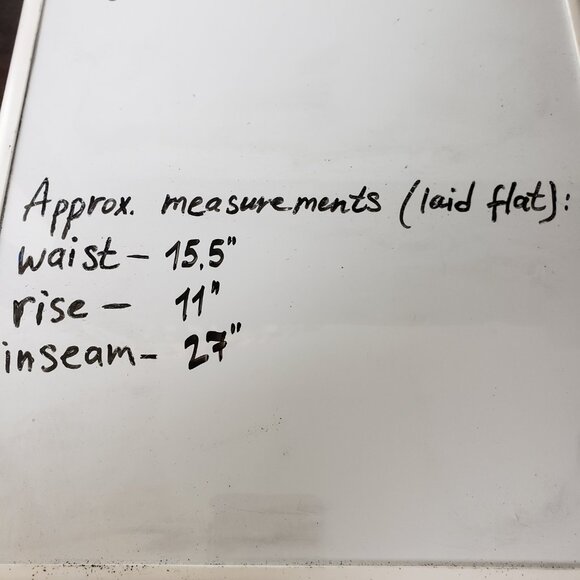 Approx. measurements (laid flat):
waist - 15,5"
rise - 11"
inseam - 27"